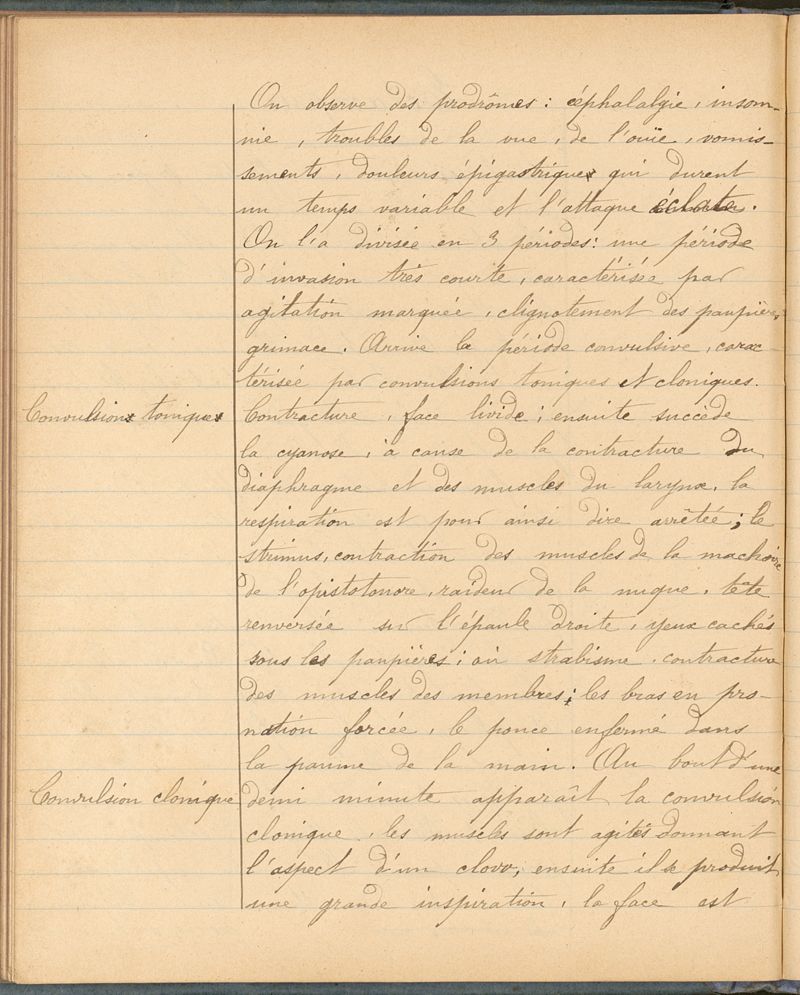 On observe des prodrômes : céphalalgie, insom-
nie, troubles de la vue, de l'ouïe, vomis-
sements, douleurs épigastriques qui durent
un temps variable et l'attaque éclate.
On l'a divisée en 3 périodes : une période
d'invasion très courte, caractérisée par
agitation marquée, clignotement des paupières,
grimace. Arrive la période convulsive, carac-
térisée par convulsions toniques et cloniques.
Convulsions toniques
Contracture, face livide ; ensuite succède
la cyanose, à cause de la contracture du
diaphragme et des muscles du larynx. la
respiration est pour ainsi dire arrêtée ; le
strimus, contraction des muscles de la machoire
de l'opistotonore, raideur de la nuque. tête
renversée sur l'épaule droite, yeux cachés
sous les paupières ; où strabisme. contracture
des muscles des membres ; les bras en pro-
nation forcée, le pouce enfermé dans
la paume de la main. Au bout d'une
Convulsion clonique
demi minute apparaît la convulsion
clonique. les muscles sont agités donnant
l'aspect d'un clovv, ensuite il se produit
une grande inspiration, la face est